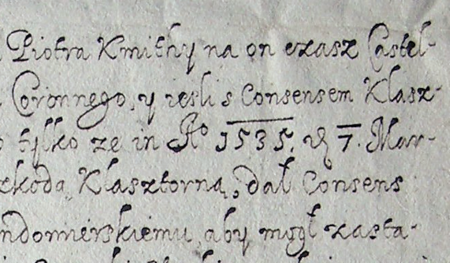 Piotra Kmithy na on czasz Castel-
Coronnego, y iesli s Consensem Klasz-
tylko ze in Aº 1535. 7. Mar-
szkoda Klasztorna, dał Consens
ndomierskiemu, aby mogł zasta-